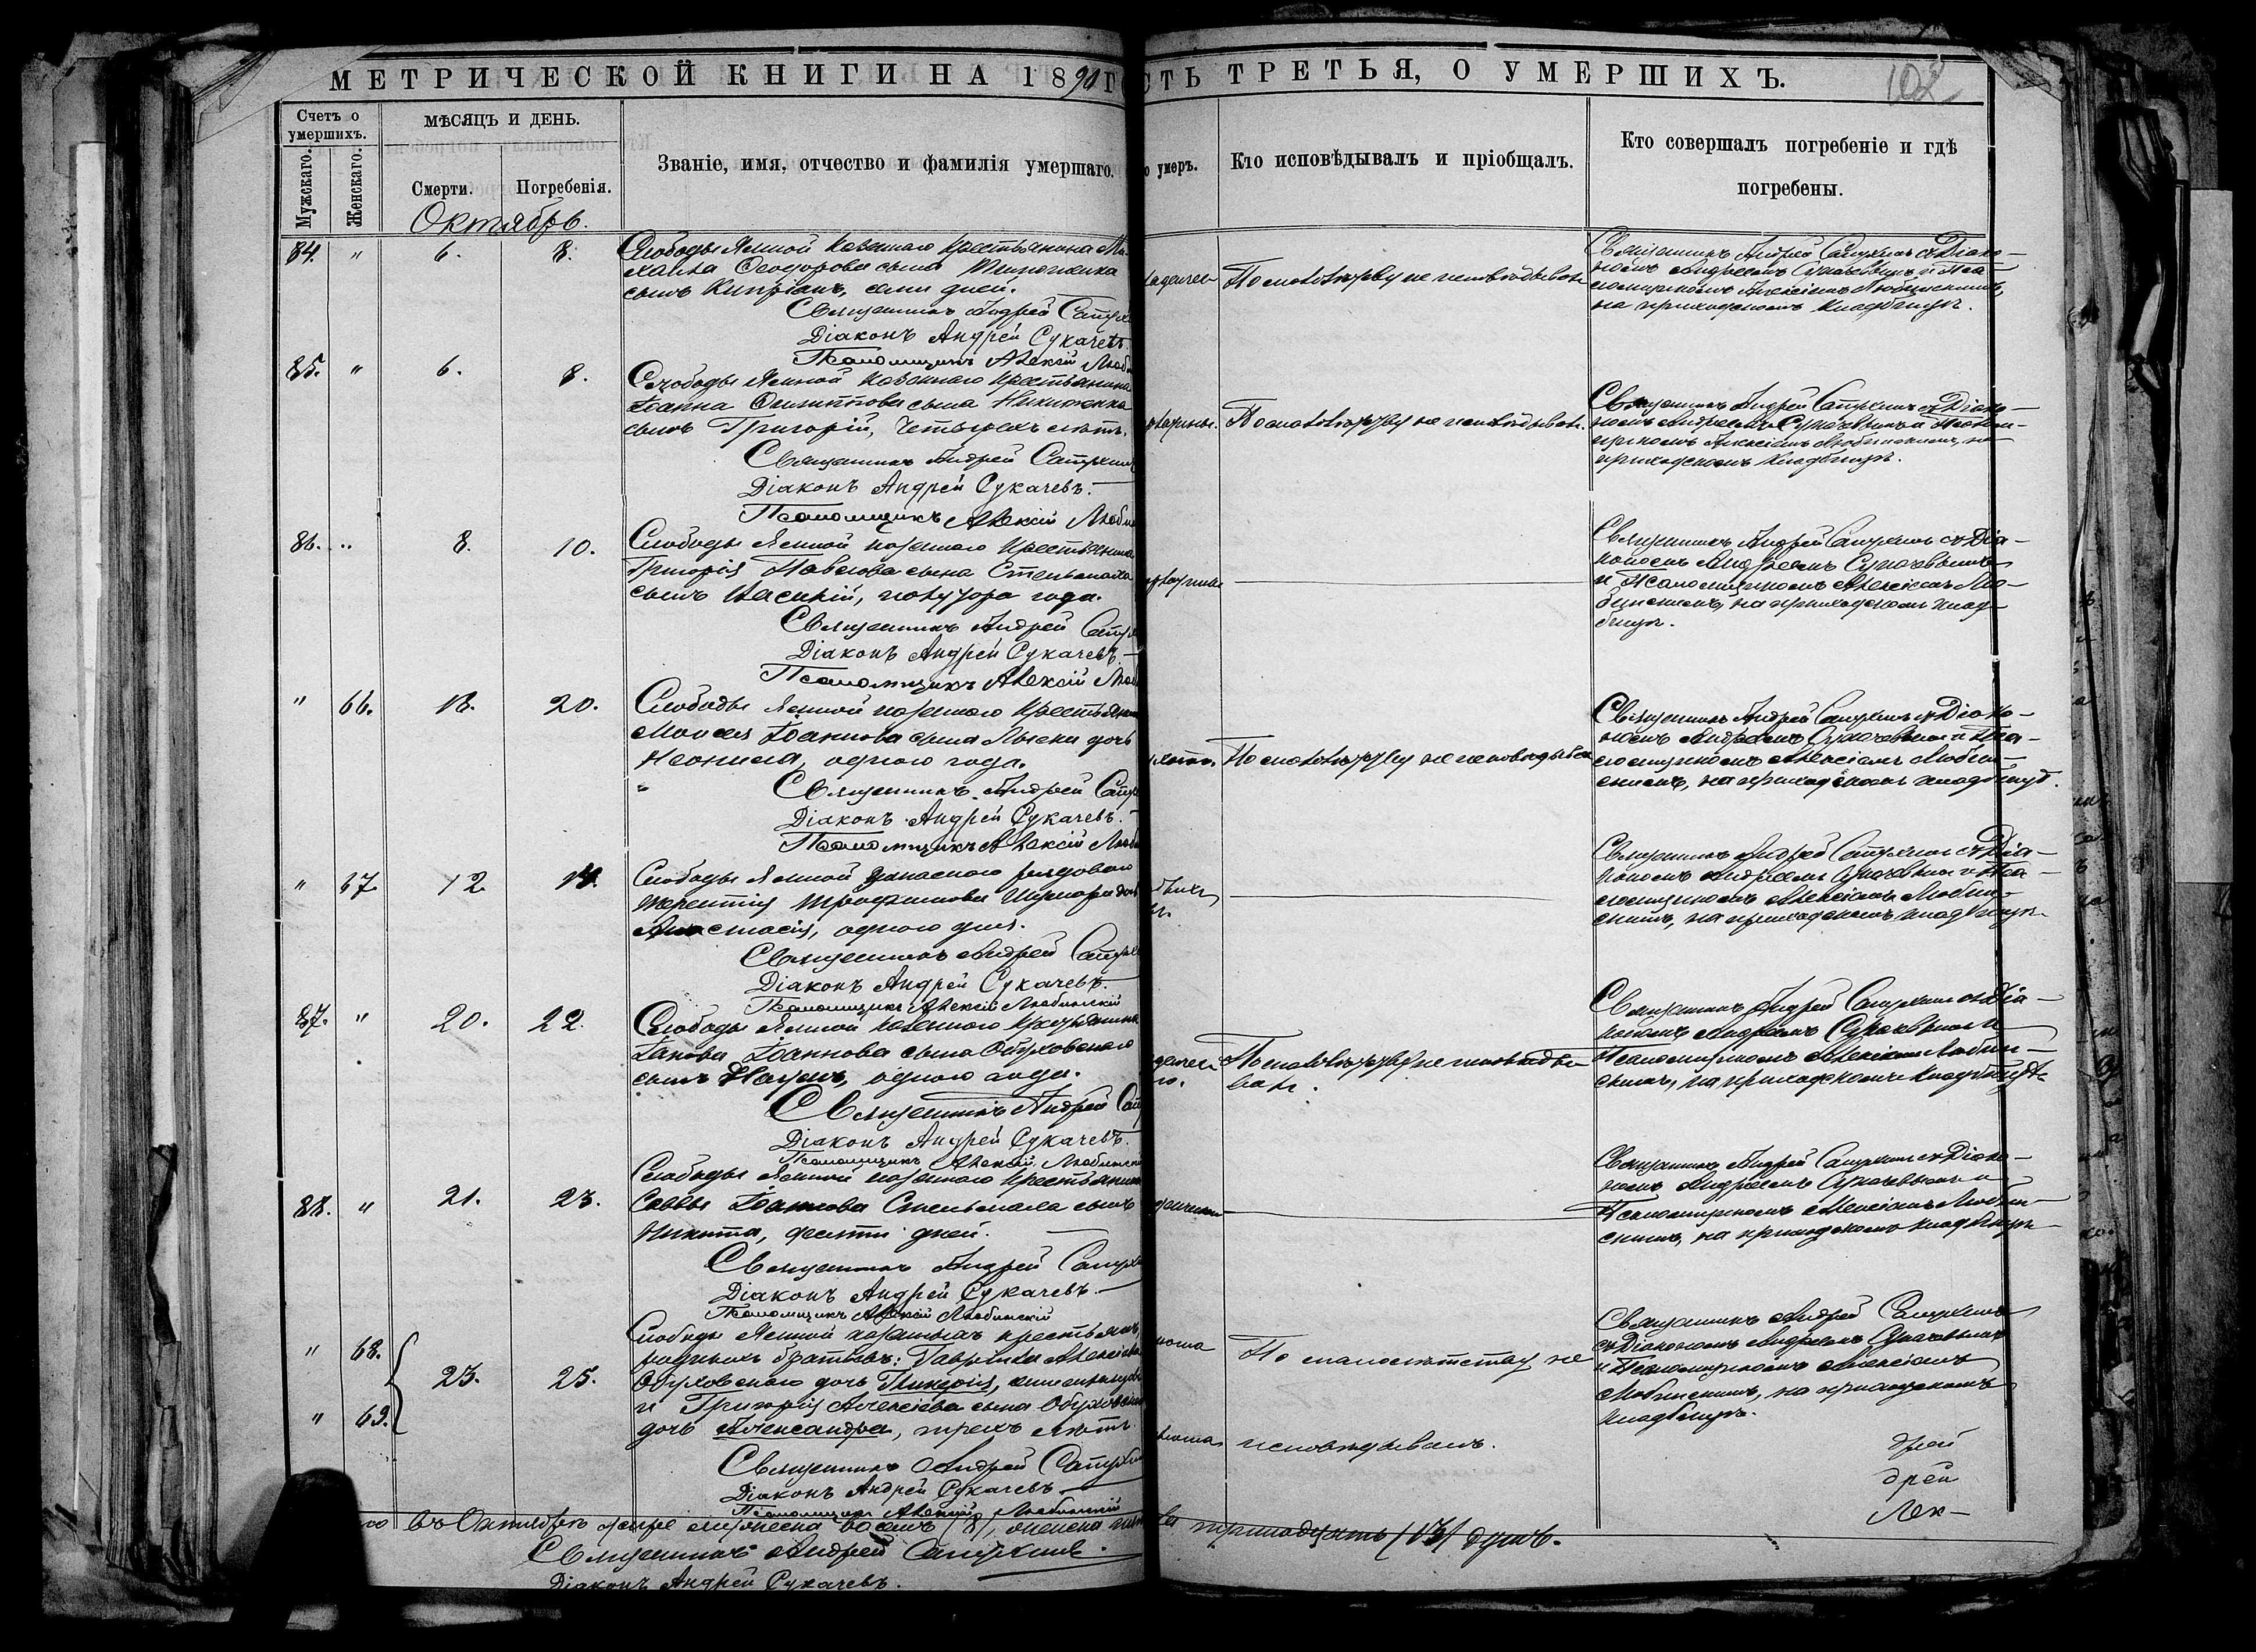 МЕТРИЧЕСКОЙ КНИГИ НА 1890 Г
СТЬ ТРЕТЬЯ, О УМЕРШИХЪ.
102
Счетъ о умершихъ.
Мужскаго.
Женскаго.
МѢСЯЦЪ И ДЕНЬ.
Смерти.
Погребенія.
Званіе, имя, отчество и фамилія умершаго.
о умеръ.
Кто исповѣдывалъ и пріобщалъ.
Кто совершалъ погребеніе и гдѣ
погребены.
Октябрь.
84. " 6. 8.
Слободы Ямной казеннаго крестьянина Ми-
хаила Ѳеодорова сына
сынъ Кипріанъ, семи дней.
Священникъ Андрей
Діаконъ Андрей Сукачевъ.
Псаломщикъ Алексій
По малолѣтству не исповѣдыванъ
Священникъ Андрей Сапухинъ съ Діако-
номъ Андреемъ Сукачевымъ и Пса-
ломщикомъ Алексіемъ Любинскимъ,
на приходскомъ кладбищѣ.
85. " 6. 8.
Слободы Ямной казеннаго крестьянина
Іоанна Филиппова сына
сынъ Григорій, четырехъ лѣтъ.
Священникъ Андрей Сапухинъ
Діаконъ Андрей Сукачевъ.
Псаломщикъ Алексій
По малолѣтству не исповѣдыванъ.
Священникъ Андрей Сапухинъ съ Діако-
номъ Андреемъ Сукачевымъ и Псалом-
щикомъ Алексіемъ Любинскимъ, на
приходскомъ кладбищѣ.
86. " 8. 10.
Слободы Ямной казеннаго крестьянина
Григорія Павлова сына
сынъ Василій, полутора года.
Священникъ Андрей
Діаконъ Андрей Сукачевъ.
Псаломщикъ Алексій
Священникъ Андрей Сапухинъ съ Діа-
кономъ Андреемъ Сукачевымъ
и Псаломщикомъ Алексіемъ Лю-
бинскимъ, на приходскомъ клад-
бищѣ.
" 66. 18. 20.
Слободы Ямной казеннаго крестьянина
Моисея Іоаннова сына дочь
Неонила, одного года.
Священникъ Андрей
Діаконъ Андрей Сукачевъ.
Псаломщикъ Алексій
По малолѣтству не исповѣдыван
Священникъ Андрей Сапухинъ съ Діако-
номъ Андреемъ Сукачевымъ и Пса-
ломщикомъ Алексіемъ Любин-
скимъ, на приходскомъ кладбищѣ.
" 67. 12. 14.
Слободы Ямной запаснаго рядового
Терентія Трофимова
Анастасія, одного дня.
Священникъ Андрей
Діаконъ Андрей Сукачевъ.
Псаломщикъ Алексій Любинскій
Священникъ Андрей Сапухинъ съ Діа-
кономъ Андреемъ Сукачевымъ и Пса-
ломщикомъ Алексіемъ Любин-
скимъ, на приходскомъ кладбищѣ.
87. " 20. 22.
Слободы Ямной казеннаго крестьянина
Іакова Іоаннова сына Обуховскаго
сынъ Наумъ, одного года.
Священникъ Андрей
Діаконъ Андрей Сукачевъ.
Псаломщикъ Алексій
По малолѣтству не исповѣды-
ванъ.
Священникъ Андрей Сапухинъ съ Діа-
кономъ Андреемъ Сукачевымъ и
Псаломщикомъ Алексіемъ Любин-
скимъ, на приходскомъ кладбищѣ
88. " 21. 23.
Слободы Ямной казеннаго крестьянина
Саввы Іоаннова сынъ
Никита, десяти дней.
Священникъ Андрей
Діаконъ Андрей Сукачевъ.
Псаломщикъ Алексій Любинскій
Священникъ Андрей Сапухинъ съ Діако-
номъ Андреемъ Сукачевымъ и
Псаломщикомъ Алексіемъ Любин-
скимъ, на приходскомъ кладбищѣ
" 68. 23. 25.
" 69.
Слободы Ямной казенныхъ крестьянъ,
родныхъ братьевъ: Гавріила Алексіева
Обуховскаго дочь Гликерія,
и Григорія Алексіева сына
дочь Александра, трехъ лѣтъ.
Священникъ Андрей
Діаконъ Андрей Сукачевъ
Псаломщикъ Алексій Любинскій
По малолѣтству не
исповѣдыван.
Священникъ Андрей Сапухинъ
съ Діакономъ Андреемъ Сукачевымъ
и Псаломщикомъ Алексіемъ
Любинскимъ, на приходскомъ
кладбищѣ.
дрей
дрей
Лек-
въ Октябрѣ мужеска восемь (8), женска
тринадцать (13) душъ.
Священникъ Андрей Сапухинъ.
Діаконъ Андрей Сукачевъ.